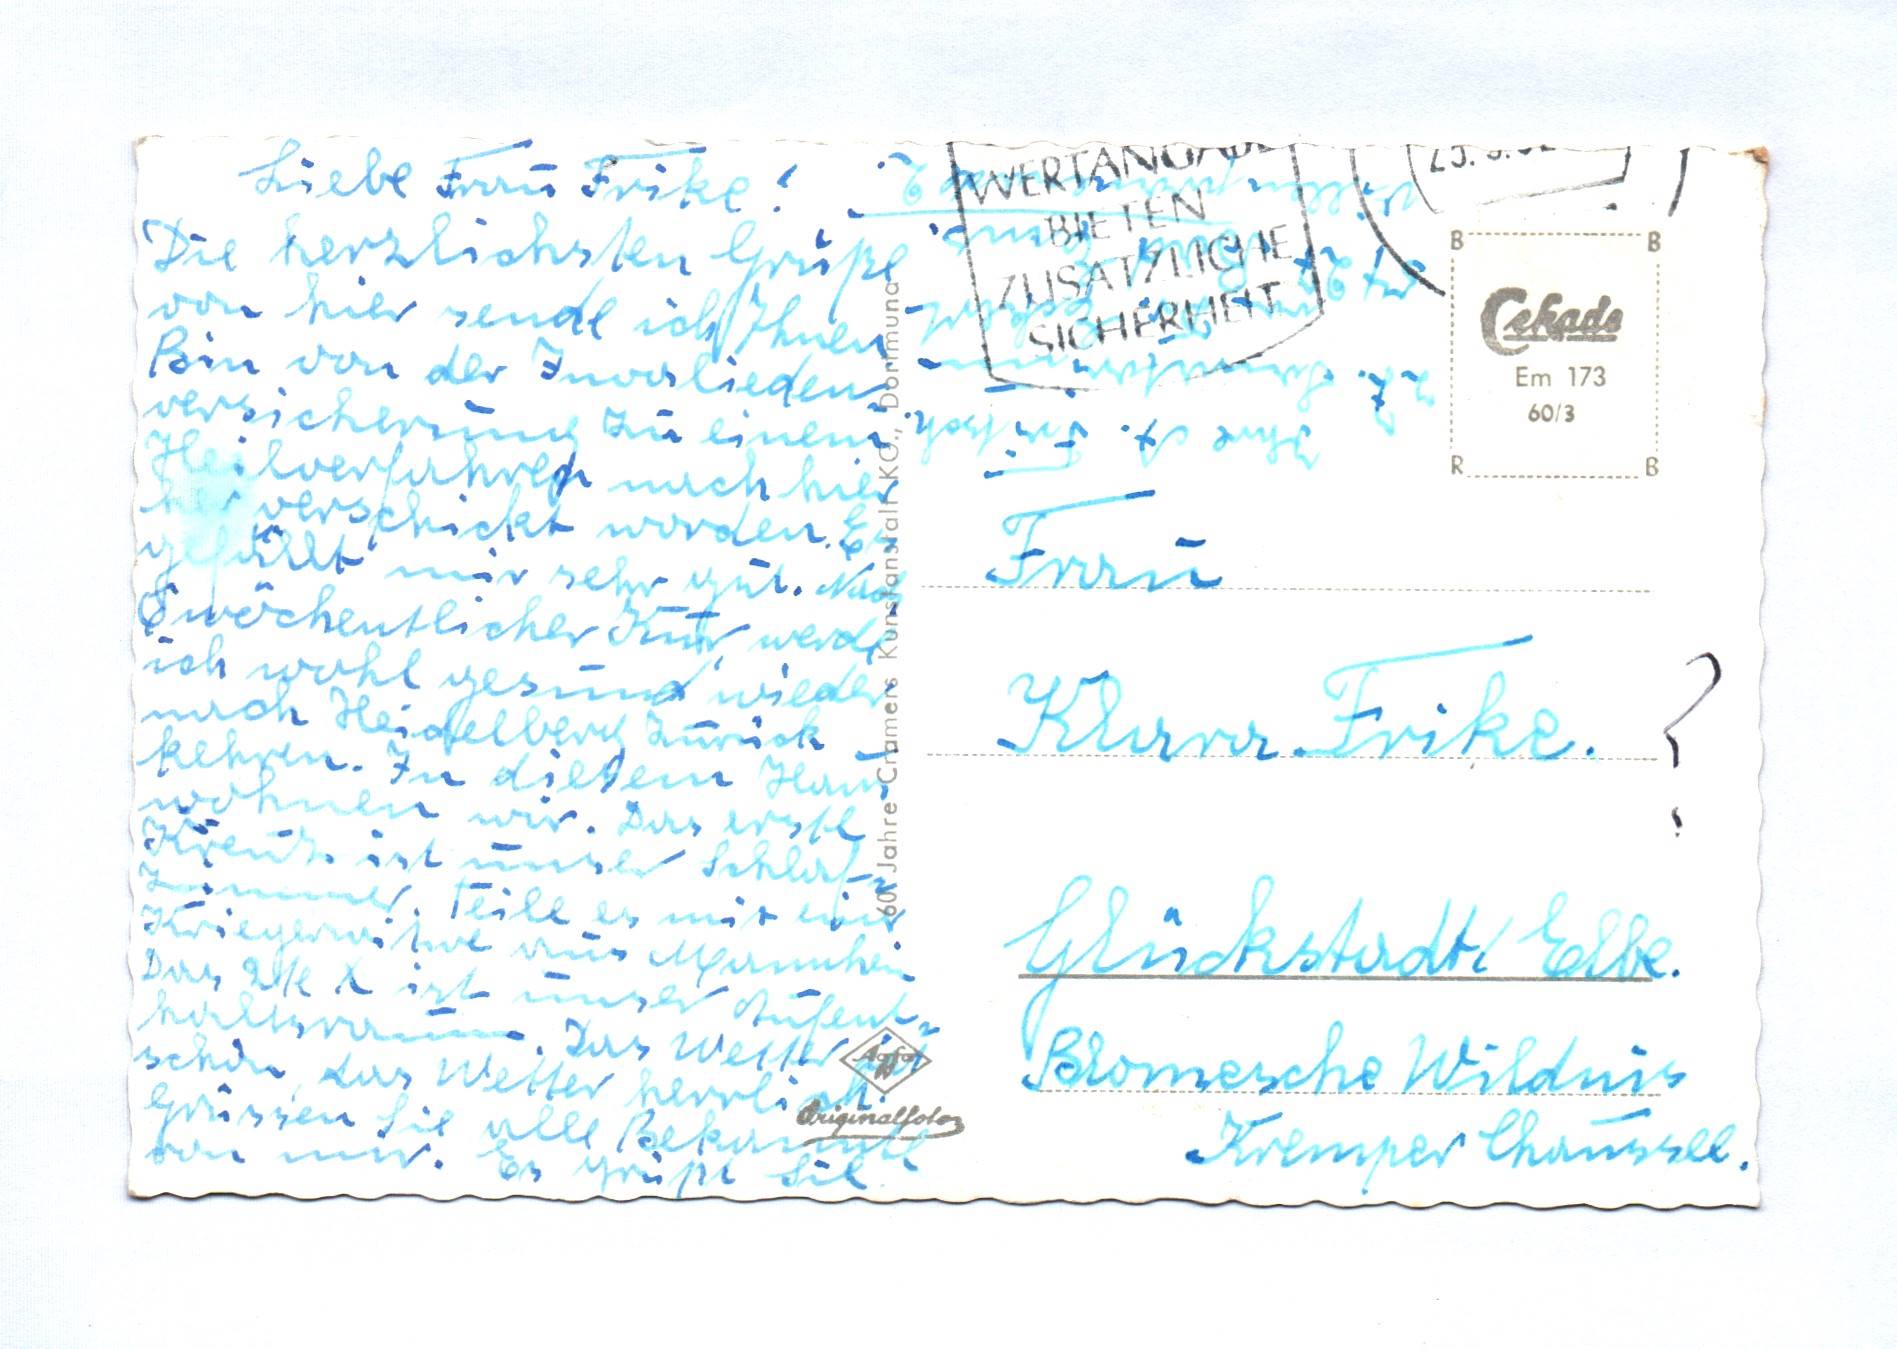 Liebe Frau Frike!
Die herzlichsten Grüße
von hier sende ich Ihnen
Bin von der Invaliden
versicherung zu einem
Heilverfahren nach hier
verschickt worden. Es
gefällt mir sehr gut. Nach
wöchentlicher Kur, werde
ich wohl gesund wieder
nach Heidelberg zurück
kehren. In diesem Haus
wohnen wir. Das erste
Kreuz ist unser Schlaf-
zimmer. Teile es mit einer
Kriegerwitwe aus Mannheim
Das 2te X ist unser Aufent-
haltsraum. Das Wetter ist
schön, das Wetter herrlich.
Grüssen Sie alle Bekannte
von mir. Es grüßt Sie
Ihre
z. Z. Sanatorium
WERTANGABE
BIETEN
ZUSÄTZLICHE
SICHERHEIT
B B
Cekade
Em 173
60/3
R B
Frau
Klara Frike.
?
Glückstadt/Elbe.
Blomesche Wildnis
Kremper Chaussee.
60 Jahre Cramers Kunstanstalt KG., Dortmund
Agfa
Originalfoto